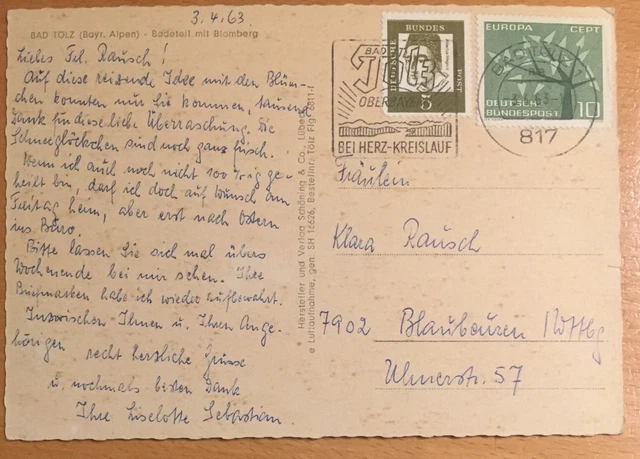 3.4.63.
BAD TÖLZ (Bayr. Alpen) - Badeteil mit Blomberg
Liebes Frl. Rausch!
Auf diese reizende Idee mit den Blüm-
chen konnten nur Sie kommen, tausend
Dank für diese liebe Überraschung. Die
Schneeglöckchen sind noch ganz frisch.
Wenn ich auch noch nicht 100%ig ge-
heilt bin, darf ich doch auf Wunsch am
Freitag heim, aber erst nach Ostern
ins Büro.
Bitte lassen Sie sich mal übers
Wochenende bei mir sehen. Ihre
Briefmarken habe ich wieder aufbewahrt.
Inzwischen Ihnen u. Ihren Ange-
hörigen recht herzliche Grüsse
u. nochmals besten Dank
Ihre Liselotte Sebastian.
Hersteller und Verlag Schöning & Co., Lübeck
Luftaufnahme, gen. SH 1/626, Bestellnr: Tölz Flg
DEUTSCHE BUNDESPOST
5
EUROPA CEPT
DEUTSCHE
BUNDESPOST 10
BAD
TÖLZ
BEI HERZ-KREISLAUF
BAD TÖLZ 1
817
Fräulein
Klara Rausch
7902 Blaubeuren /Wttbg
Ulmerstr. 57